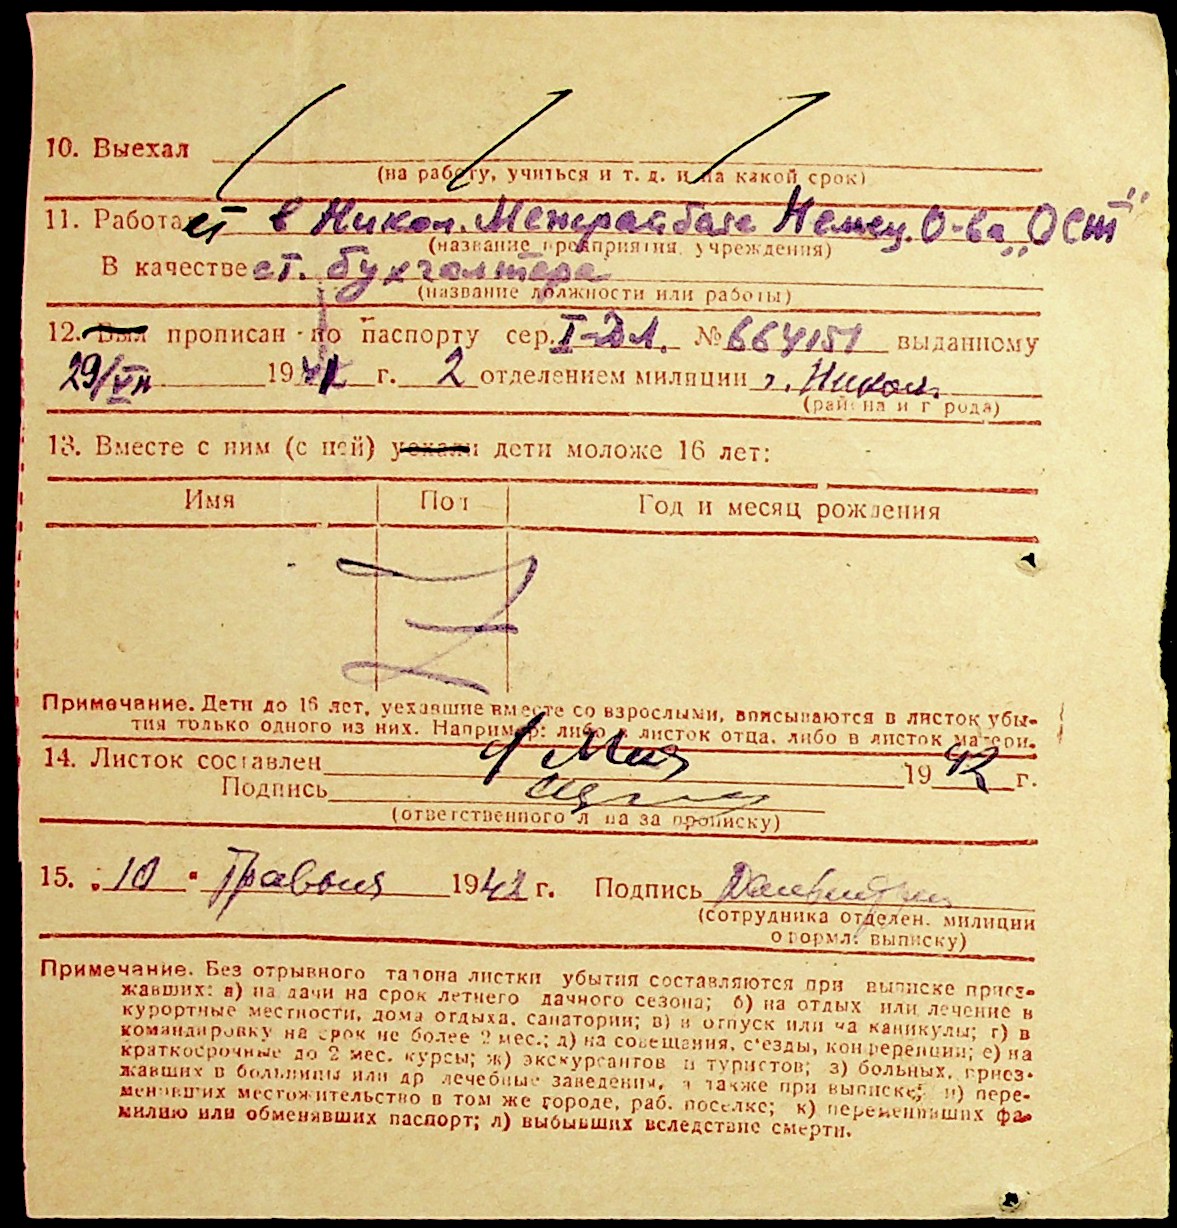 10. Выехал
(на работу, учиться и т. д. и на какой срок)
11. Работает в Никоп. Межрайбазе Немец. О-ва „Ост“
(название предприятия, учреждения)
В качестве ст. бухгалтера
(название должности или работы)
12. Был прописан по паспорту сер. I-ДЛ. № 664151 выданному
29/VII 1941 г. 2 отделением милиции г. Никоп.
(района и города)
13. Вместе с ним (с ней) уехали дети моложе 16 лет:
Имя Пол Год и месяц рождения
Примечание. Дети до 16 лет, уехавшие вместе со взрослыми, вписываются в листок убы-
тия только одного из них. Например: либо в листок отца, либо в листок матери.
14. Листок составлен 9 Мая 1942 г.
Подпись
(ответственного лица за прописку)
15. „10“ Травня 1942 г. Подпись
(сотрудника отделен. милиции
оформл. выписку)
Примечание. Без отрывного талона листки убытия составляются при выписке приез-
жавших: а) на дачи на срок летнего дачного сезона; б) на отдых или лечение в
курортные местности, дома отдыха, санатории; в) в отпуск или на каникулы; г) в
командировку на срок не более 2 мес.; д) на совещания, с'езды, конференции; е) на
краткосрочные до 2 мес. курсы; ж) экскурсантов и туристов; з) больных, приез-
жавших в больницы или др лечебные заведения, а также при выписке; и) пере-
менивших местожительство в том же городе, раб. поселке; к) переменивших фа-
милию или обменявших паспорт; л) выбывших вследствие смерти.